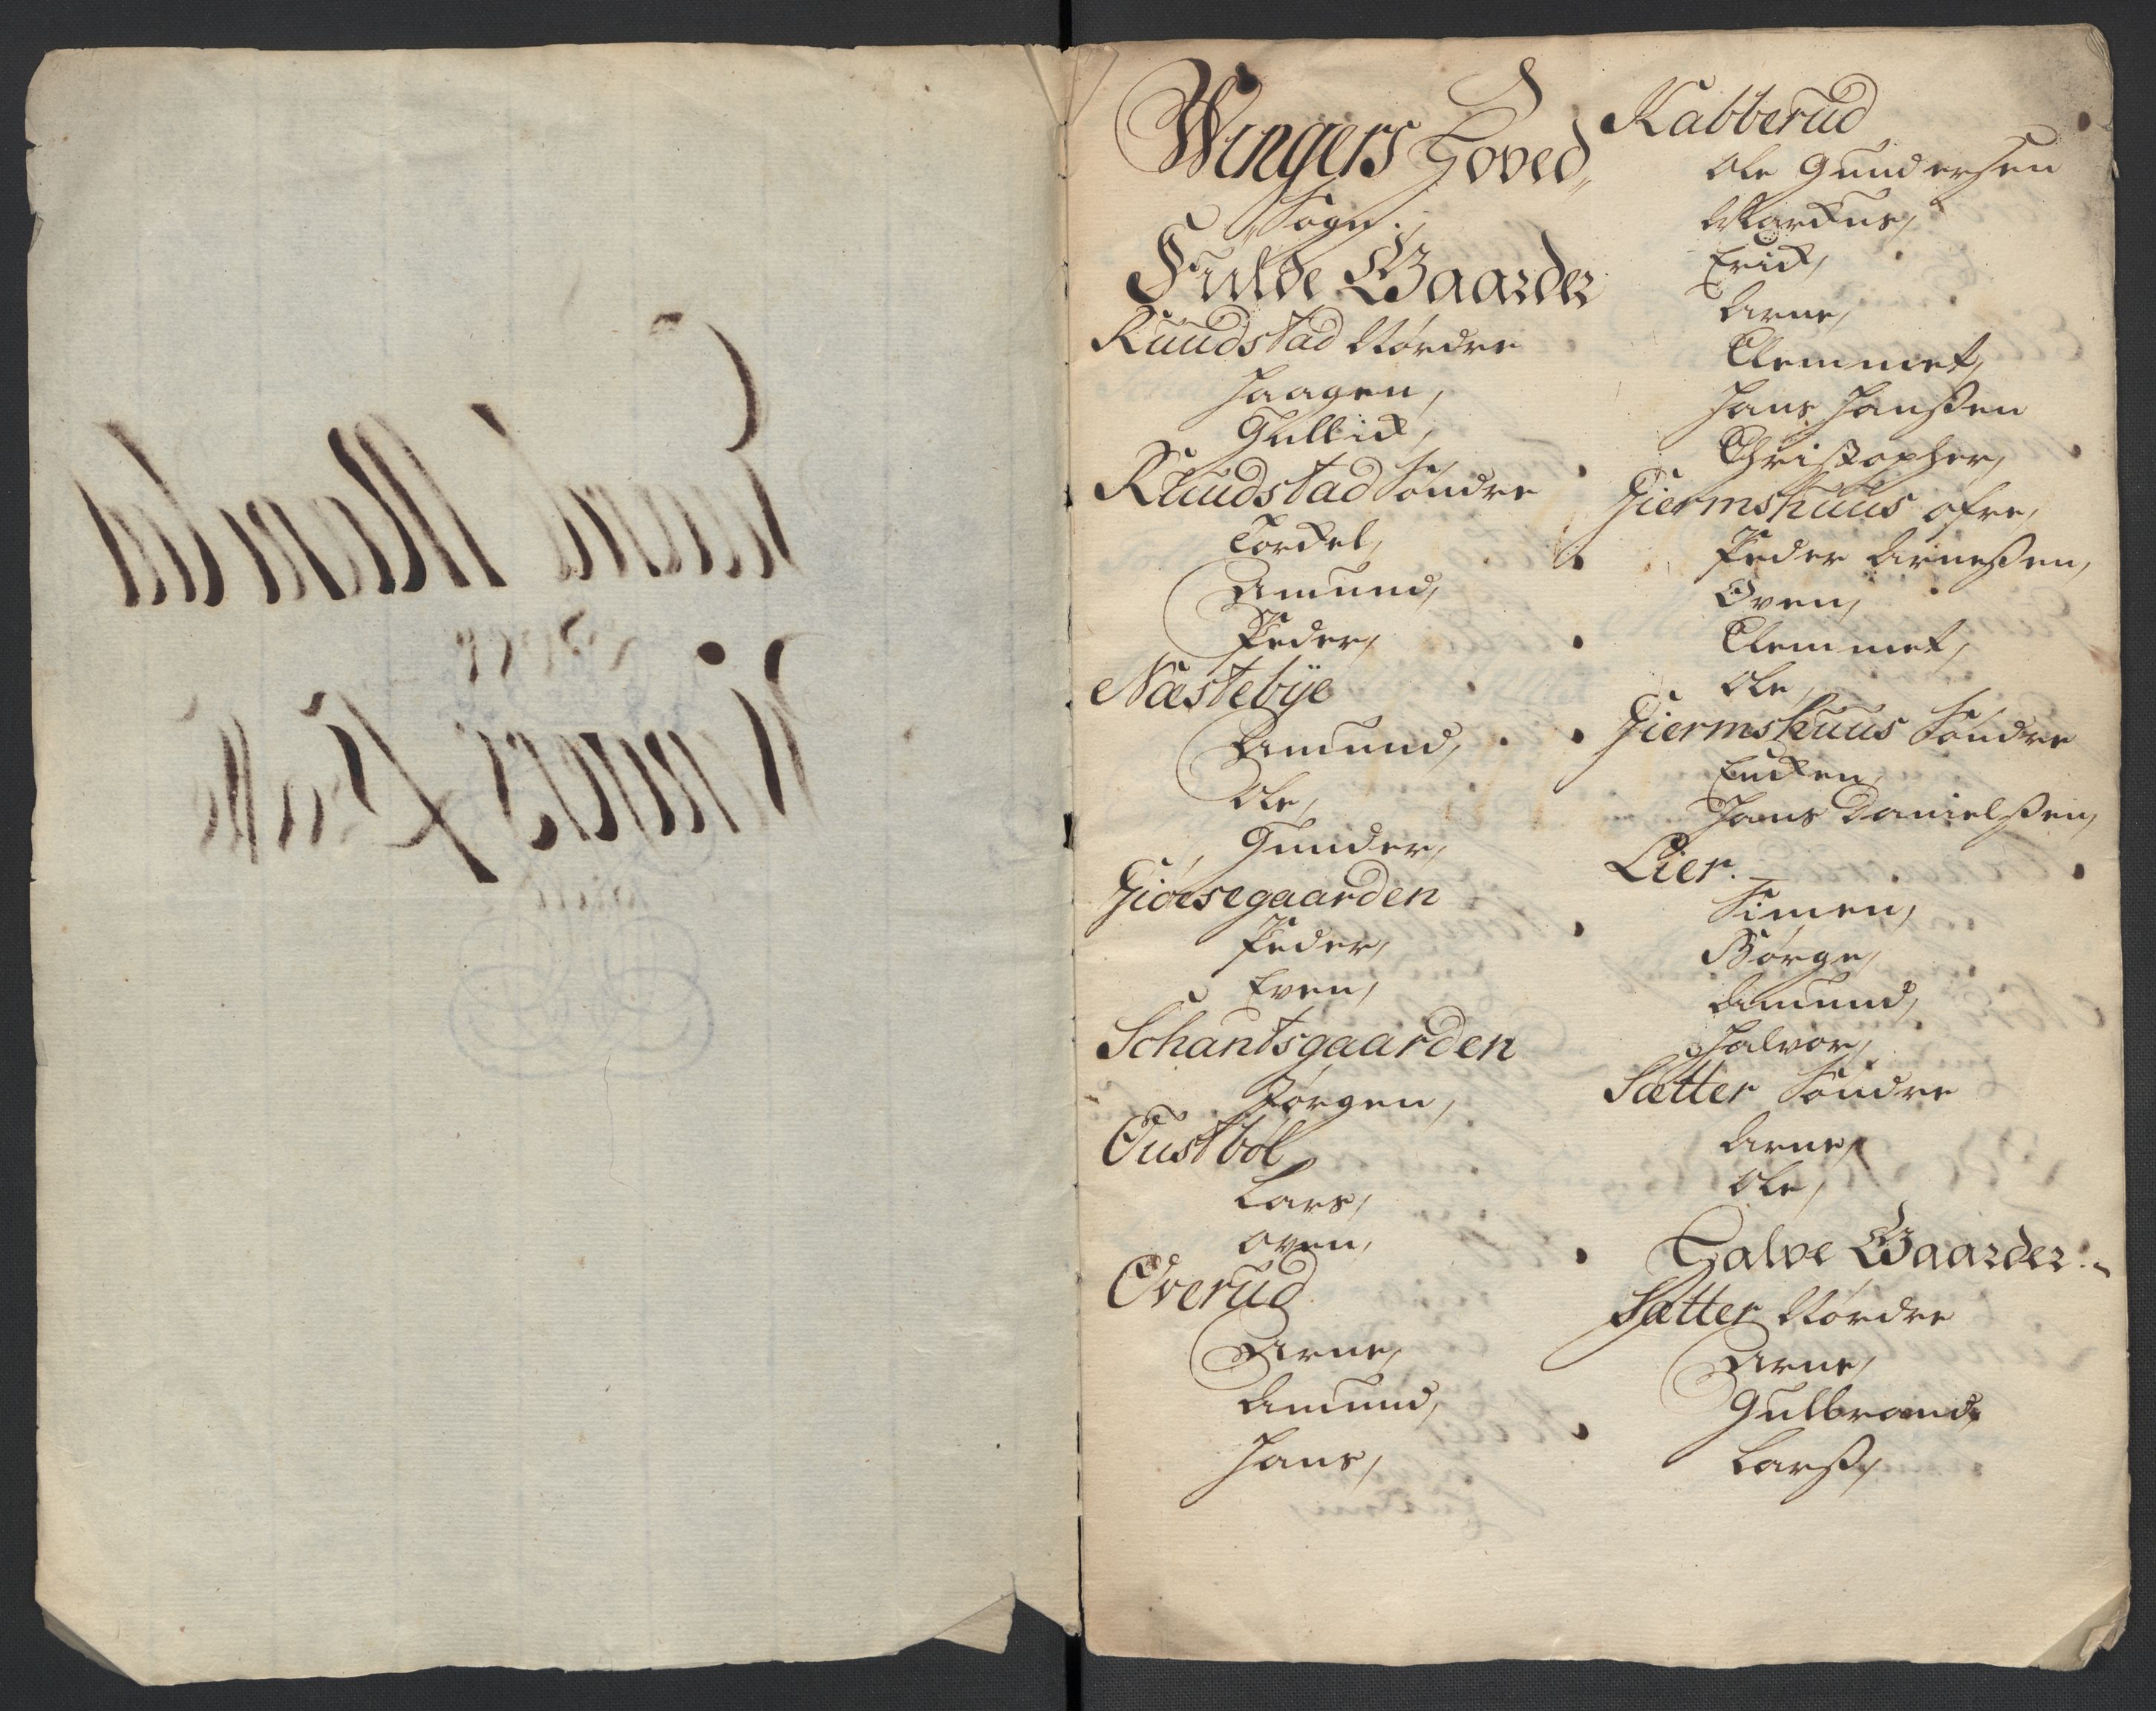 Wingers Hoved„
„Sogn.
Fulde Gaarder
Ruudstad Nordre
Haagen,
Gullick,
Ruudstad Søndre
Torckel,
Amund,
Peder,
Næstebÿe
Amund,
Ole,
Gunder,
Giøesegaarden
Peder,
Even,
Schantsgaarden
Jørgen,
Oustbøl
Lars,
Oven,
Overud
Arne,
Amund,
Hans,
Kabberud
Ole Gundersen
Marckus,
Erick,
Arne,
Clemmet,
Hans Hanßen
Christopher,
Giermshuus ofre,
Peder Arneßen,
Oven,
Clemmet,
Ole,
Giermshuus Søndre
Encken,
Hans Danielßen,
Lier.
Simen,
Børge,
Amund,
Halvor,
Sætter Søndre
Arne,
Ole,
Halve Gaarder.
Sætter Nordre
Arne,
Gulbrand,
Larß,